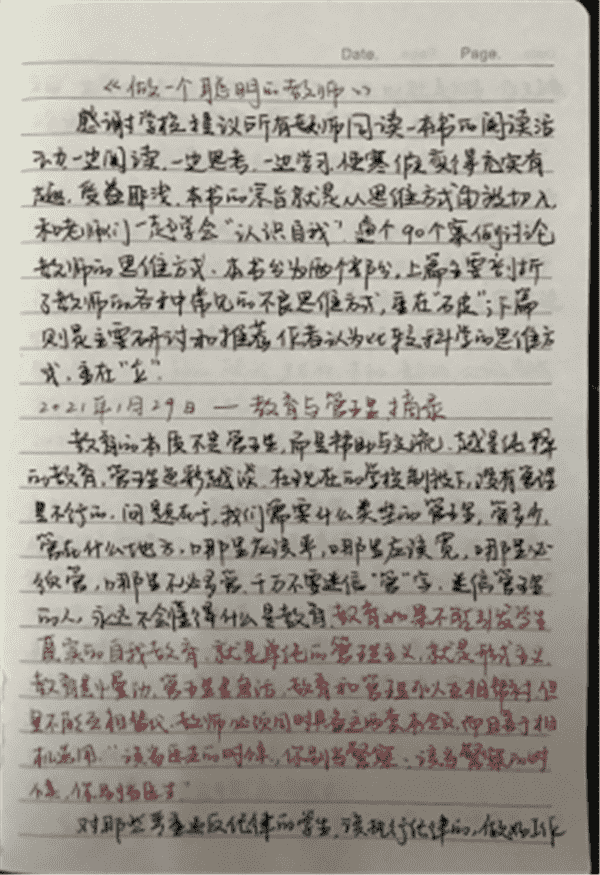 Date. Page.
《做一个聪明的教师》
感谢学校提议所有教师同读一本书的阅读活
动,一边阅读,一边思考,一边学习,使寒假变得充实有
趣,受益匪浅。本书的宗旨就是从思维方式的角度切入,
和老师们一起学会“认识自我”。通过90个案例讨论
教师的思维方式。本书分为两个部分,上篇主要剖析
了教师的各种常见的不良思维方式,重在“破”;下篇
则是主要研讨和推荐作者认为比较科学的思维方
式,重在“立”。
2021年1月29日 — 教育与管理摘录
教育的本质不是管理,而是帮助与交流。越是纯粹
的教育,管理色彩越淡。在现在的学校制度下,没有管理
是不行的。问题在于,我们需要什么类型的管理,管多少,
管在什么地方,哪里应该严,哪里应该宽,哪里必
须管,哪里不必多管。千万不要迷信“管”字。迷信管理
的人,永远不会懂得什么是教育。教育如果不能引发学生
真实的自我教育,就是单纯的管理主义,就是形式主义。
教育是心灵活动,管理是 教育和管理可以互相帮衬,但
是不能互相替代。教师必须同时具备这两套本领,而且善于相
机选用。“该当医生的时候,你别当警察;该当警察的时
候,你别当医生”
对那些 违反纪律的学生,该执行纪律的,做好工作